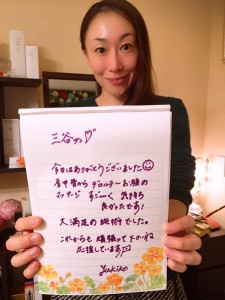 三谷さん♡
今日はありがとうございました☺
背中首からデコルテーお顔の
マッサージ すごーく 気持ち
良かったです!
大満足の施術でした。
これからも 頑張って下さいね
応援しています
yukiko